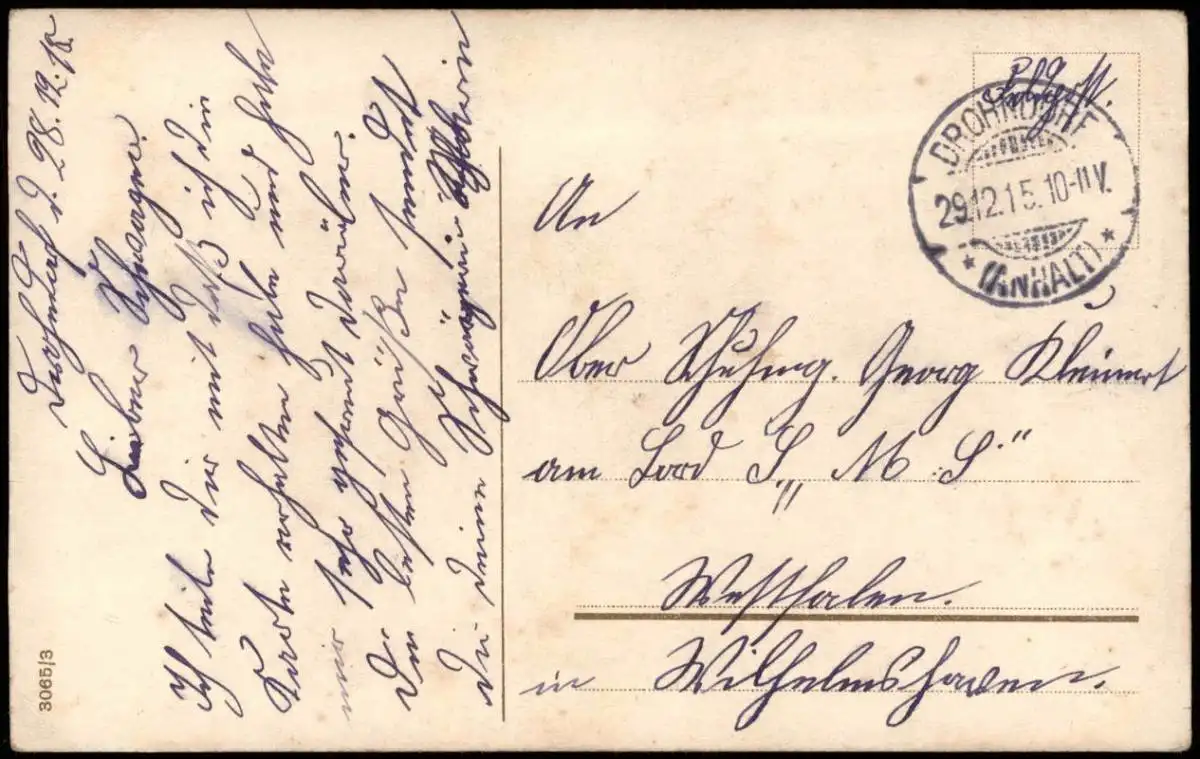 Drohndorf d. 28.12.15.
Lieber Schwager.
Ich teile Dir mit daß ich Dein
Karte erhalten habe und habe
mir sehr gefreut darüber.
Die besten Grüße sendet
Dir Deine Schwägerin
An
Ober Georg Kleinert
am Bord S. M. S.
"Westfalen.
in Wilhelmshaven.
DROHNDORF
29.12.15. 10-11 V.
* (ANHALT) *
3065/3